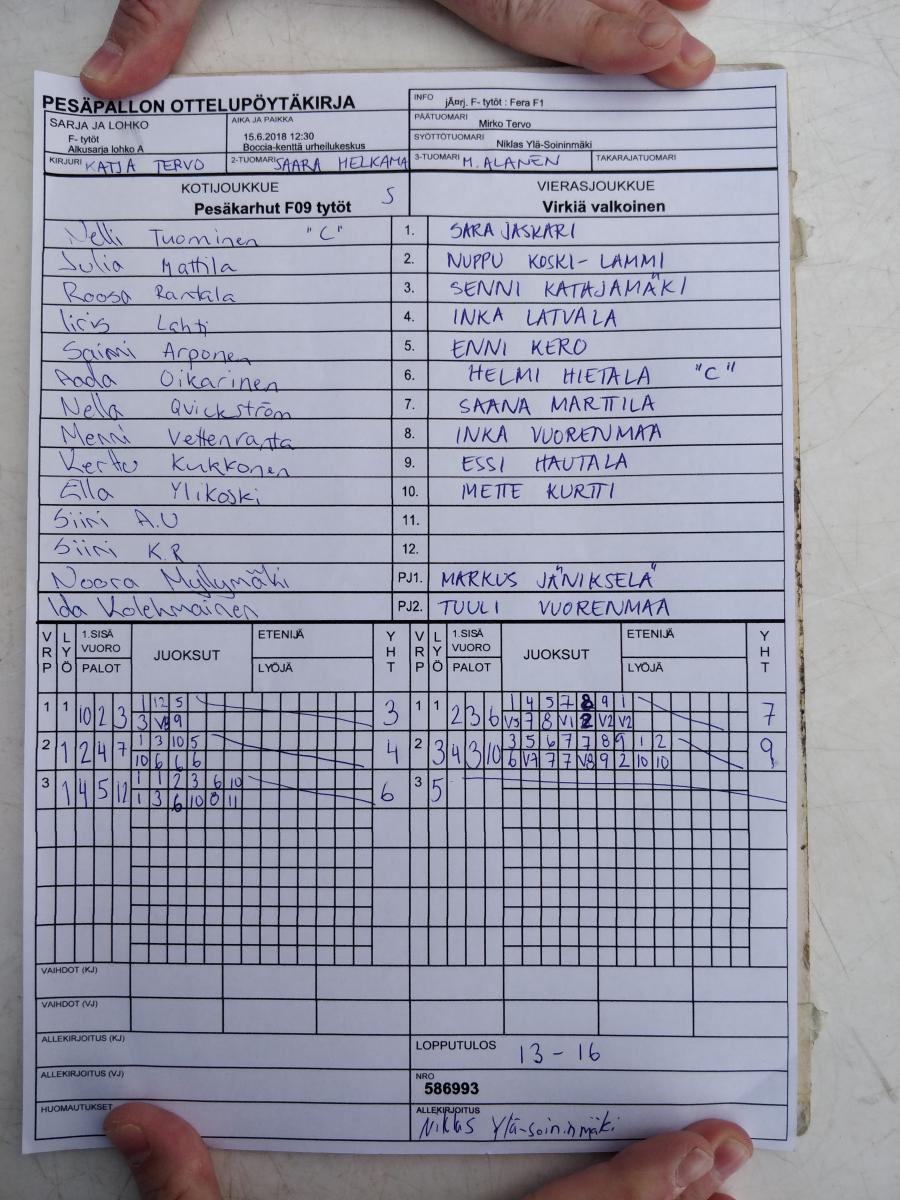 PESÄPALLON OTTELUPÖYTÄKIRJA
INFO jÃ¤rj. F- tytöt : Fera F1
SARJA JA LOHKO
F- tytöt
Alkusarja lohko A
AIKA JA PAIKKA
15.6.2018 12:30
Boccia-kenttä urheilukeskus
PÄÄTUOMARI Mirko Tervo
SYÖTTÖTUOMARI Niklas Ylä-Soininmäki
KIRJURI KATJA TERVO 2-TUOMARI SAARA HELKAMA 3-TUOMARI M. ALANEN TAKARAJATUOMARI
KOTIJOUKKUE S VIERASJOUKKUE
Pesäkarhut F09 tytöt Virkiä valkoinen
Nelli Tuominen "C" 1. SARA JASKARI
Julia Mattila 2. NUPPU KOSKI-LAMMI
Roosa Rantala 3. SENNI KATAJAMÄKI
Iiris Lahti 4. INKA LATVALA
Saimi Arponen 5. ENNI KERO
Aada Oikarinen 6. HELMI HIETALA "C"
Nella Quickström 7. SAANA MARTTILA
Menni Vettenranta 8. INKA VUORENMAA
Kerttu Kukkonen 9. ESSI HAUTALA
Ella Ylikoski 10. METTE KURTTI
Siiri A.U 11.
Siiri K.R 12.
Noora Myllymäki PJ1. MARKUS JÄNIKSELÄ
Ida Kolehmainen PJ2. TUULI VUORENMAA
VRP LYÖ 1.SISÄ VUORO PALOT JUOKSUT ETENIJÄ LYÖJÄ YHT VRP LYÖ 1.SISÄ VUORO PALOT JUOKSUT ETENIJÄ LYÖJÄ YHT
1 1 10 2 3 1 12 5 3 1 1 2 3 6 1 4 5 7 8 9 1 7
3 V8 9 V3 7 8 V1 2 V2 V2
2 1 2 4 7 1 3 10 5 4 2 3 4 3 10 3 5 6 7 7 8 9 1 2 9
10 6 6 6 6 V7 7 7 V8 9 2 10 10
3 1 4 5 12 1 1 2 3 6 10 6 3 5
1 3 6 10 8 11
VAIHDOT (KJ)
VAIHDOT (VJ)
ALLEKIRJOITUS (KJ)
LOPPUTULOS 13 - 16
ALLEKIRJOITUS (VJ)
NRO
586993
HUOMAUTUKSET
ALLEKIRJOITUS
Niklas Ylä-soininmäki